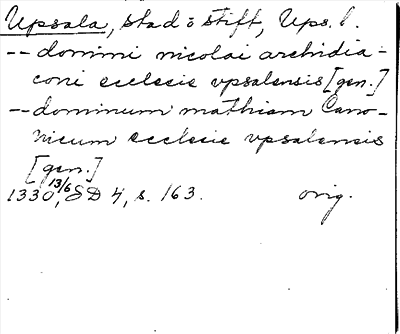 Upsala, stad o stift, Ups. l.
-- domini nicolai archidia-
coni ecclecie vpsalensis [gen.]
-- dominum mathiam Cano-
nicum ecclecie vpsalensis
[gen.]
1330 13/6, SD 4, s. 163. orig.